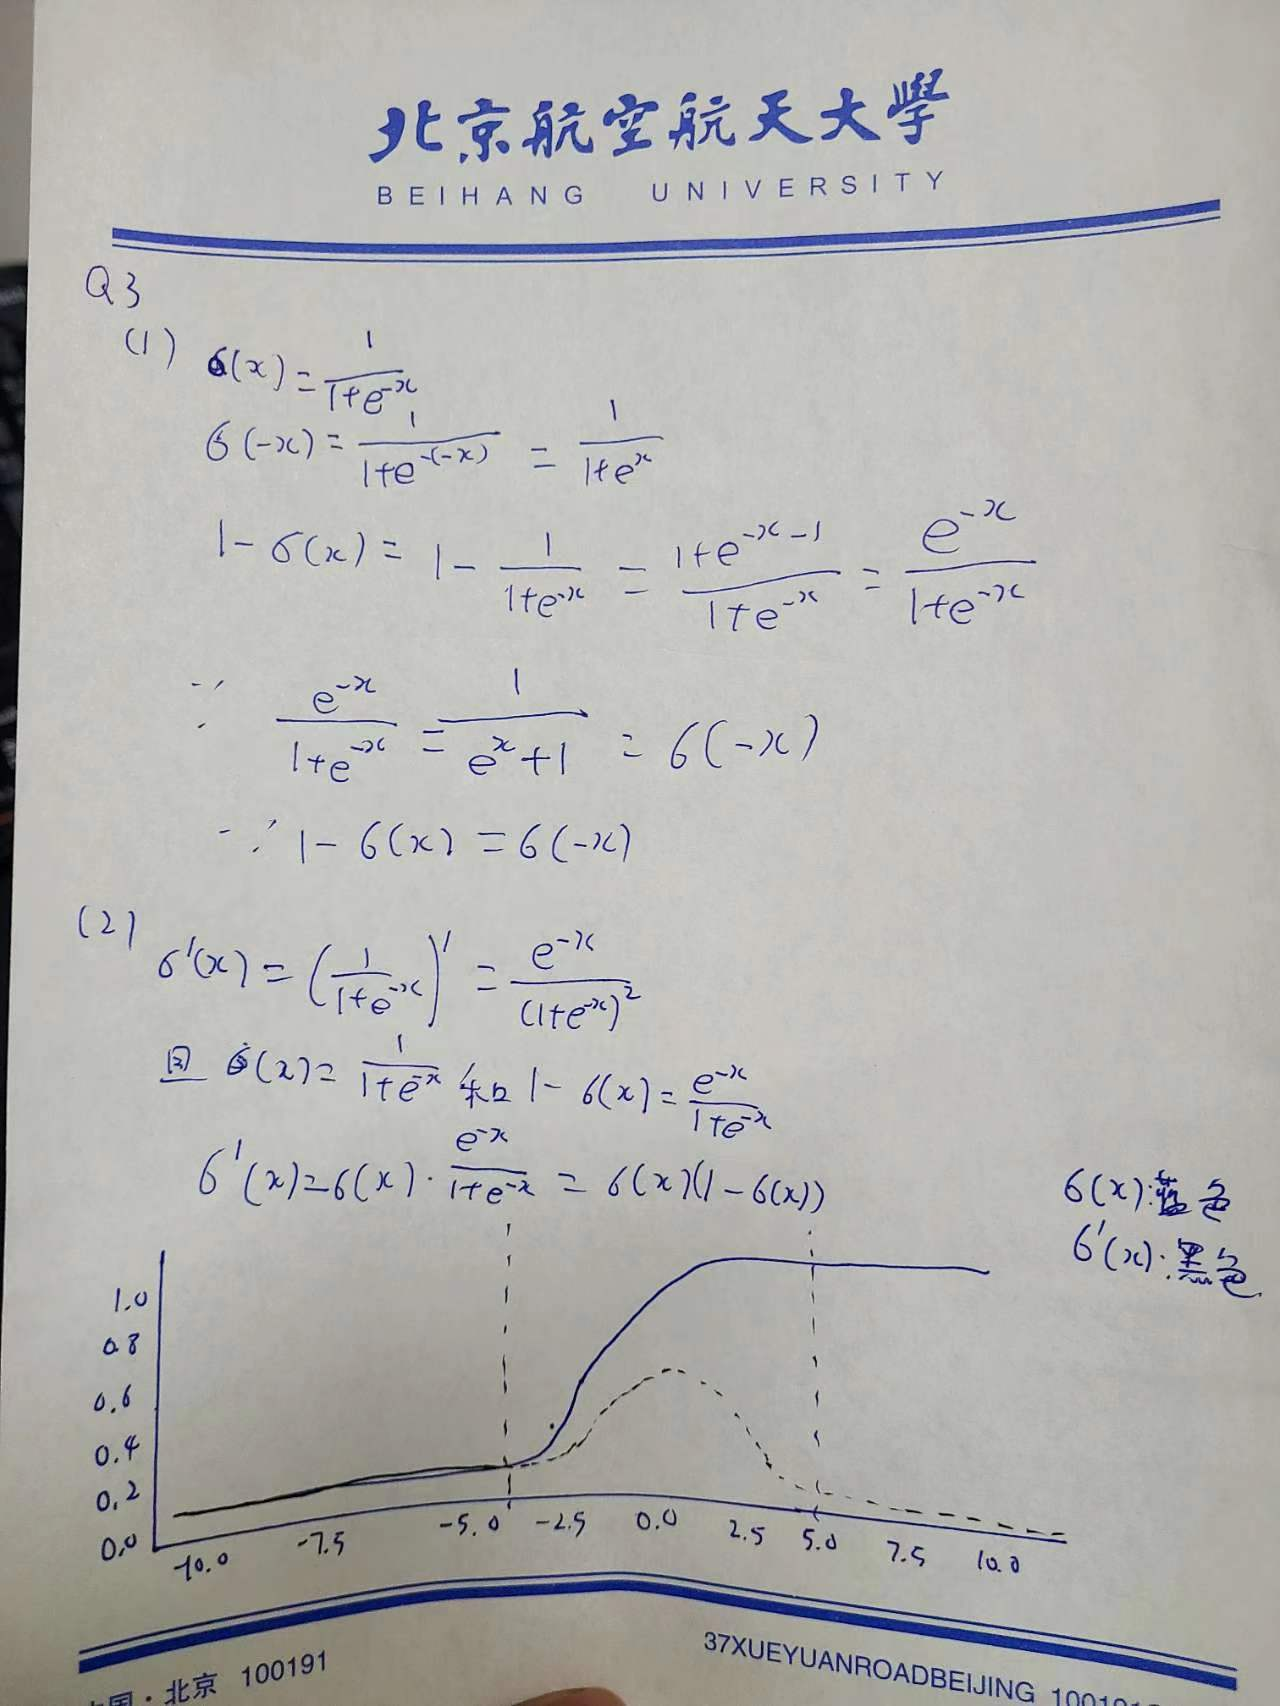 北京航空航天大學
BEIHANG UNIVERSITY
Q3
(1) σ(x)=1/(1+e^-x)
σ(-x)=1/(1+e^-(-x)) = 1/(1+e^x)
1-σ(x)=1-1/(1+e^-x) = (1+e^-x-1)/(1+e^-x) = e^-x/(1+e^-x)
∵ e^-x/(1+e^-x) = 1/(e^x+1) = σ(-x)
∵ 1-σ(x)=σ(-x)
(2)
σ'(x)=(1/(1+e^-x))' = e^-x/(1+e^-x)^2
因 σ(x)=1/(1+e^-x) 和 1-σ(x)=e^-x/(1+e^-x)
σ'(x)=σ(x)·e^-x/(1+e^-x) = σ(x)(1-σ(x))
σ(x):蓝色
σ'(x):黑色
1.0
0.8
0.6
0.4
0.2
0.0
-10.0 -7.5 -5.0 -2.5 0.0 2.5 5.0 7.5 10.0
国·北京 100191
37XUEYUANROADBEIJING